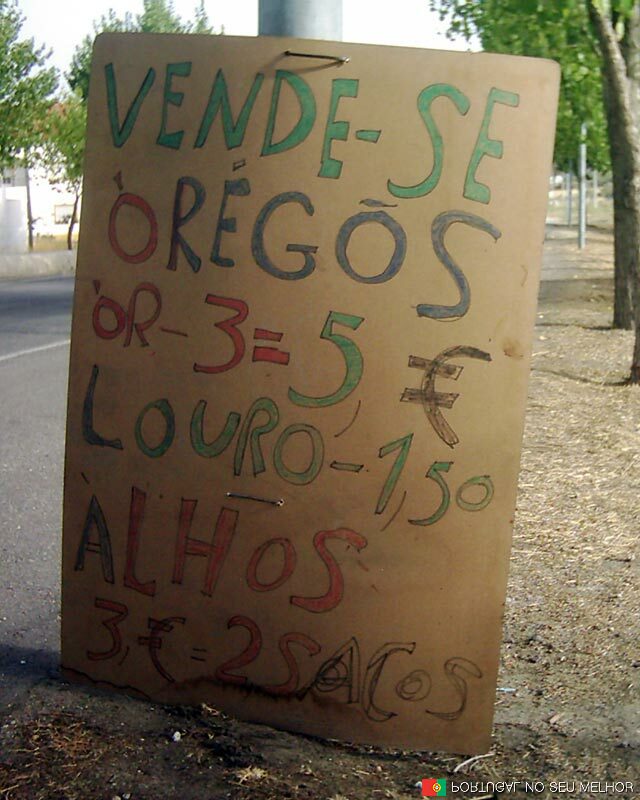 VENDE-SE
ÒRÉGÕS
ÒR-3=5,€
LOURO-1,50
ÀLHOS
3,€=2SACOS
PORTUGAL NO SEU MELHOR